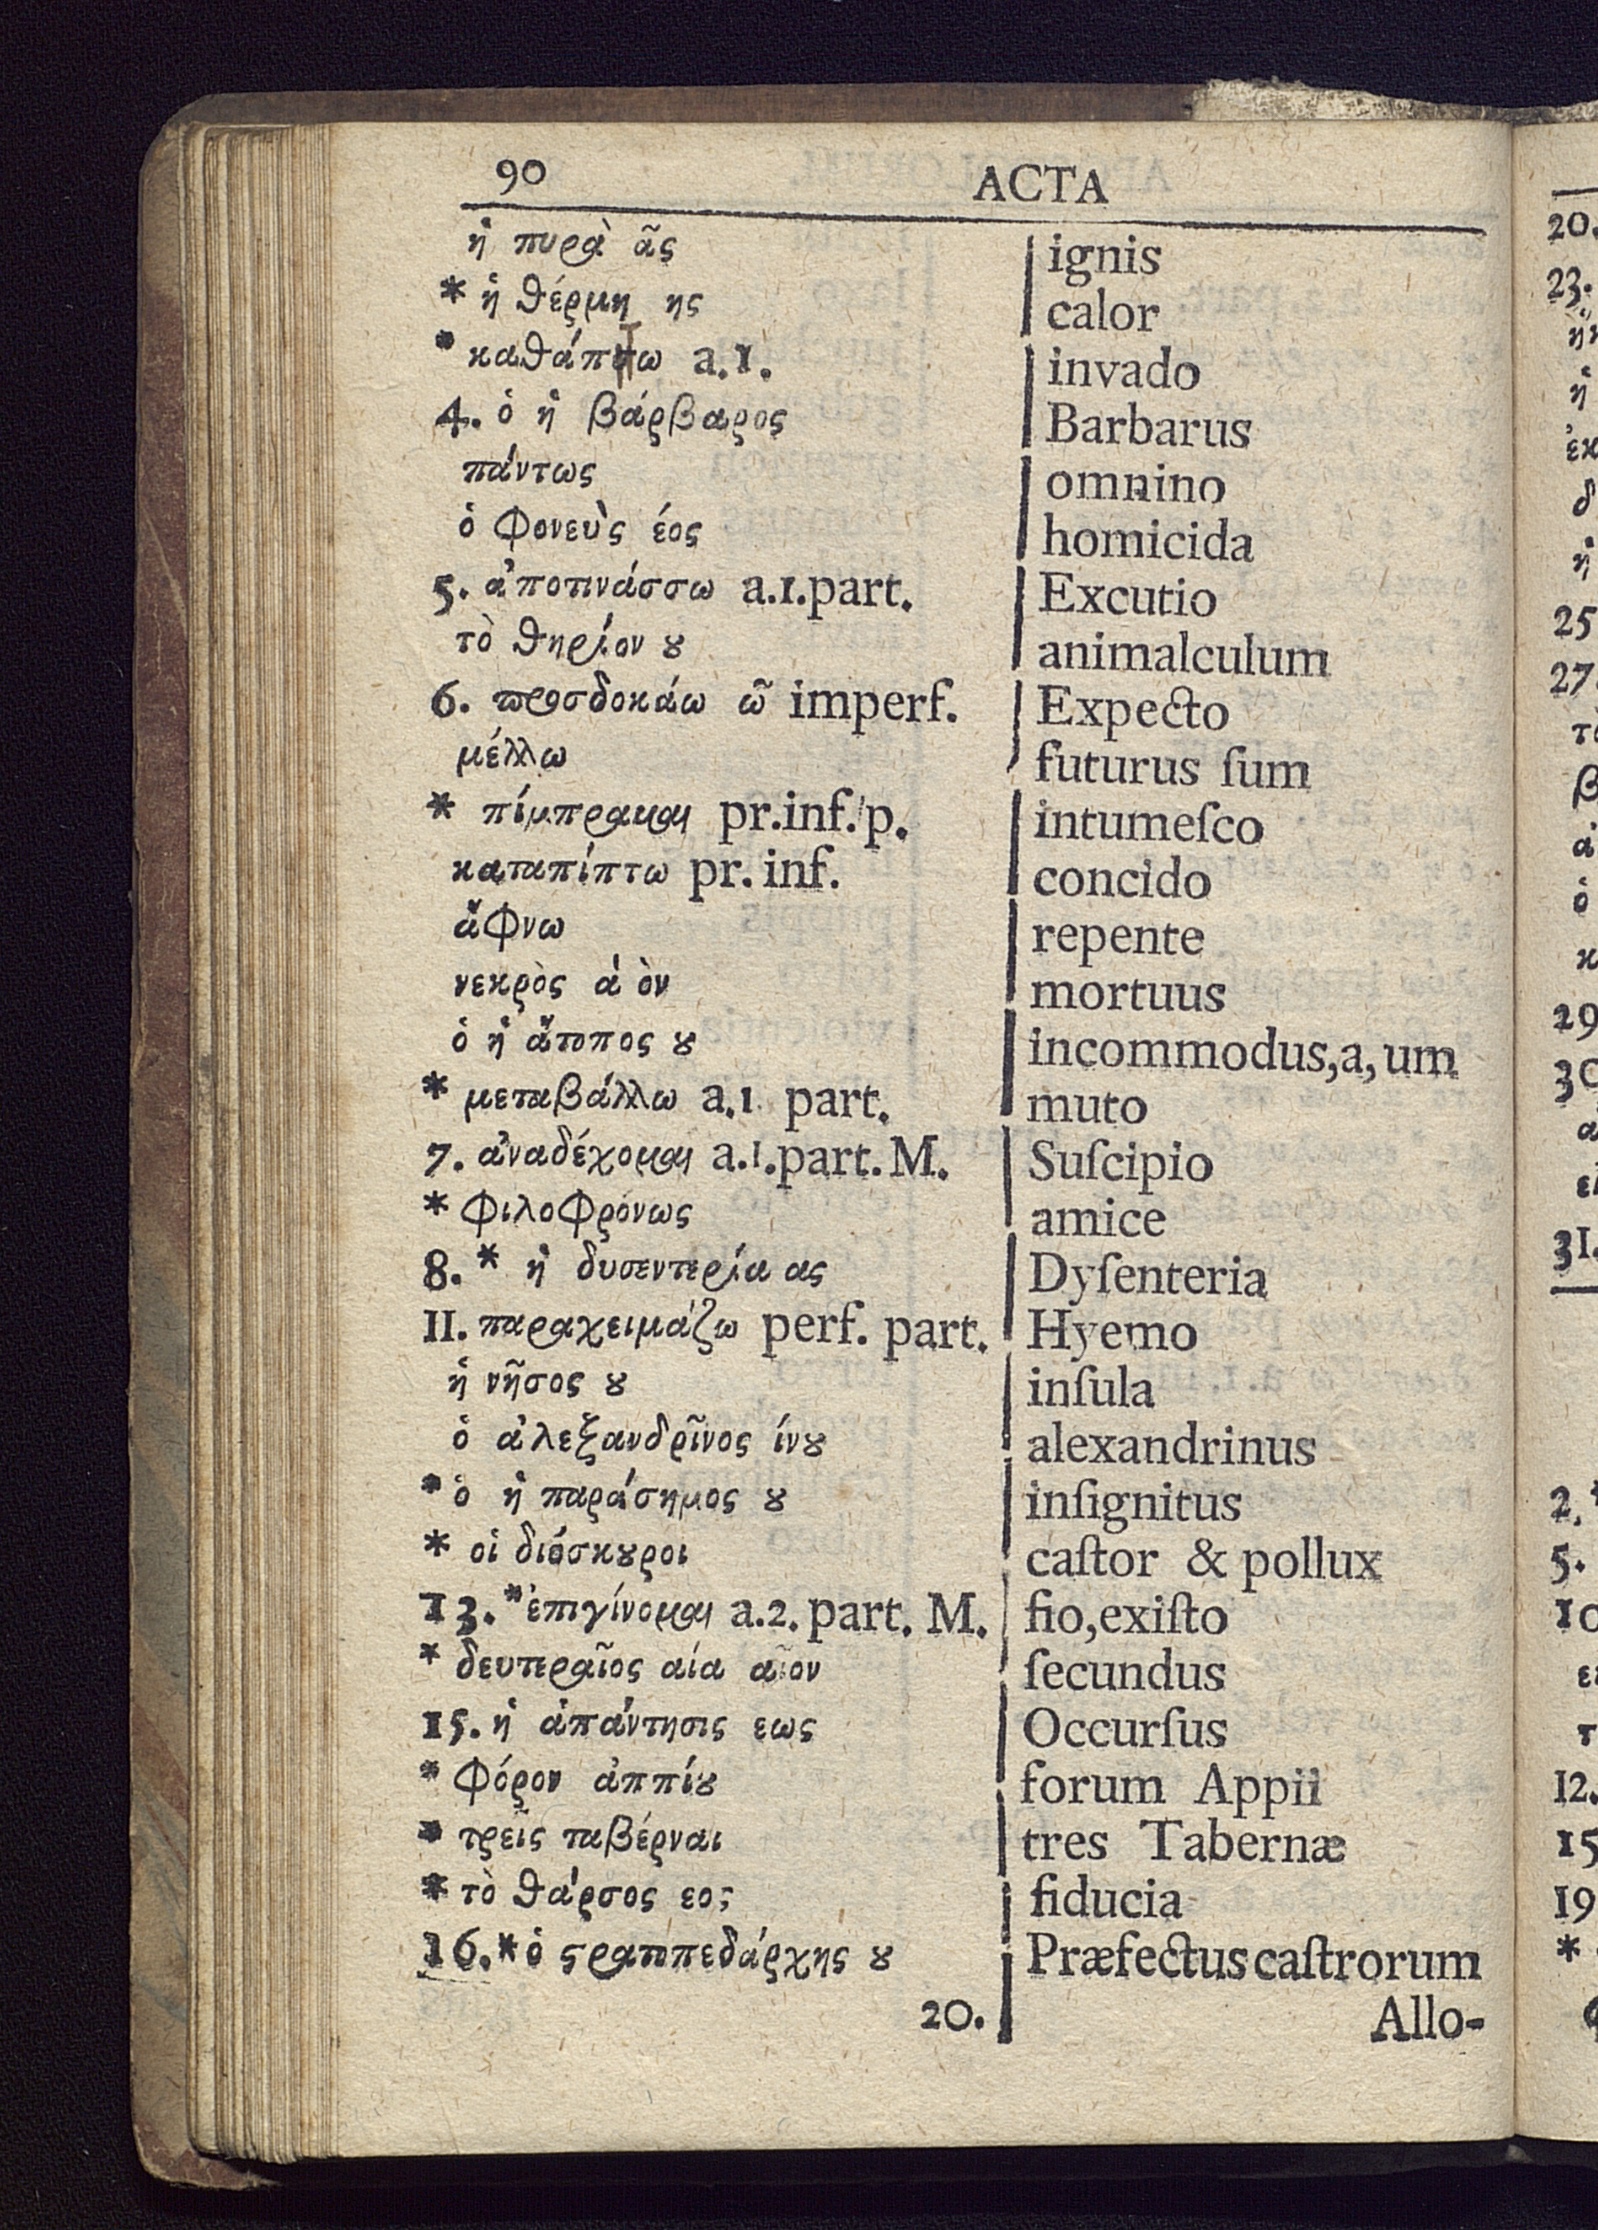 90 ACTA
ἡ πυρὰ ᾶς ignis
* ἡ θέρμη ης calor
* καθάπτω a.1. invado
4. ὁ ἡ βάρβαρος Barbarus
πάντως omnino
ὁ φονεὺς έος homicida
5. ἀποτινάσσω a.1.part. Excutio
τὸ θηρίον ȣ animalculum
6. προσδοκάω ῶ imperf. Expecto
μέλλω futurus ſum
* πίμπραμαι pr.inf. p. intumeſco
καταπίπτω pr. inf. concido
ἄφνω repente
νεκρὸς ά ὸν mortuus
ὁ ἡ ἄτοπος ȣ incommodus,a, um
* μεταβάλλω a.1 part. muto
7. ἀναδέχομαι a.1.part. M. Suſcipio
* φιλοφρόνως amice
8. * ἡ δυσεντερία ας Dyſenteria
11. παραχειμάζω perf. part. Hyemo
ἡ νῆσος ȣ inſula
ὁ ἀλεξανδρῖνος ίνȣ alexandrinus
* ὁ ἡ παράσημος ȣ inſignitus
* οἱ διόσκȣροι caſtor & pollux
13. * ἐπιγίνομαι a.2. part. M. fio,exiſto
* δευτεραῖος αία αῖον ſecundus
15. ἡ ἀπάντησις εως Occurſus
* φόρον ἀππίȣ forum Appii
* τρεῖς ταβέρναι tres Tabernæ
* τὸ θάρσος εος fiducia
16. * ὁ ϛρατοπεδάρχης ȣ Præfectus caſtrorum
20. Allo-
20.
23.
25
27
29
30
31.
2. *
5.
10
12.
15
19
*